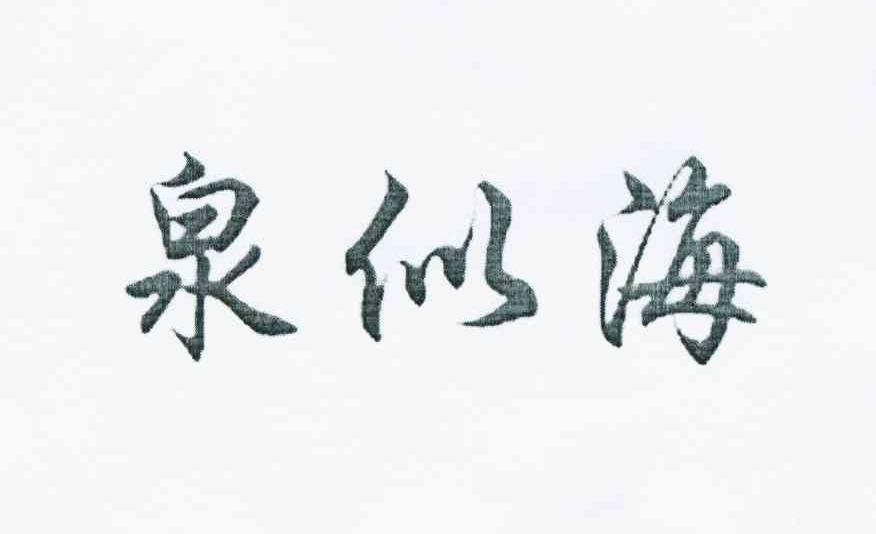 泉似海